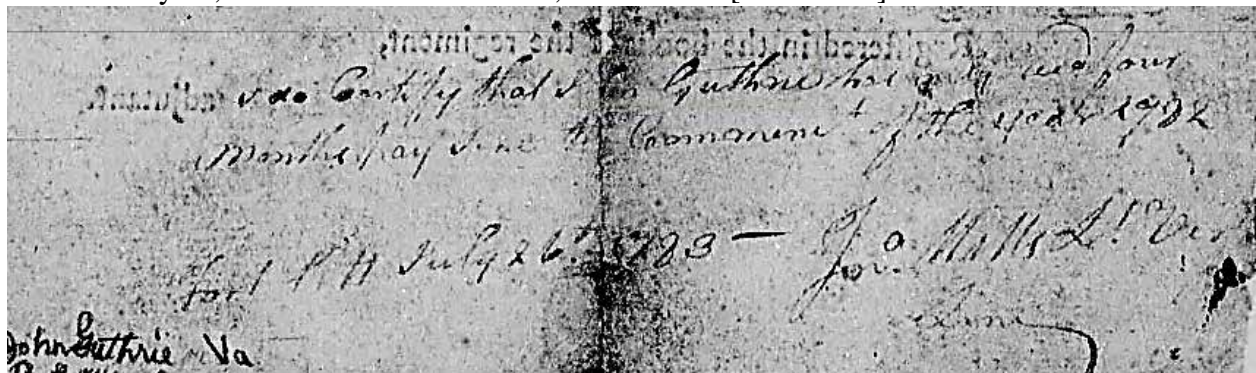 Registered in the books of the regiment,
adjutant.
I do Certify that John Guthrie has only recd four
Months pay since the Commencmt of the year 1782
Fort Pitt July 26th 1783 — Lt Vir
Line
John Guthrie Va